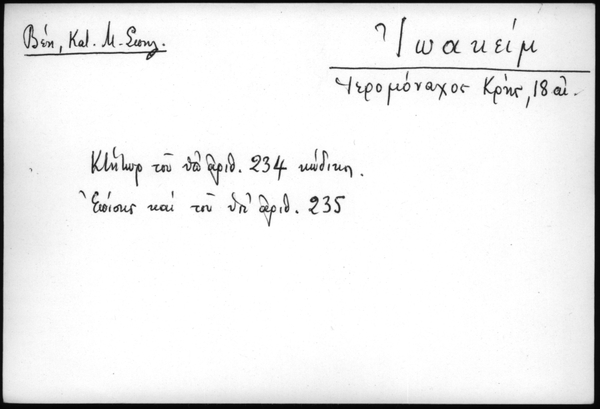 Βέη, Κατ. Μ. Σπηλ.
Ἰωακείμ
Ἱερομόναχος Κρής, 18 αἰ.
Κτήτωρ τοῦ ὑπ' ἀριθ. 234 κώδικος.
Ἐπίσης καὶ τοῦ ὑπ' ἀριθ. 235